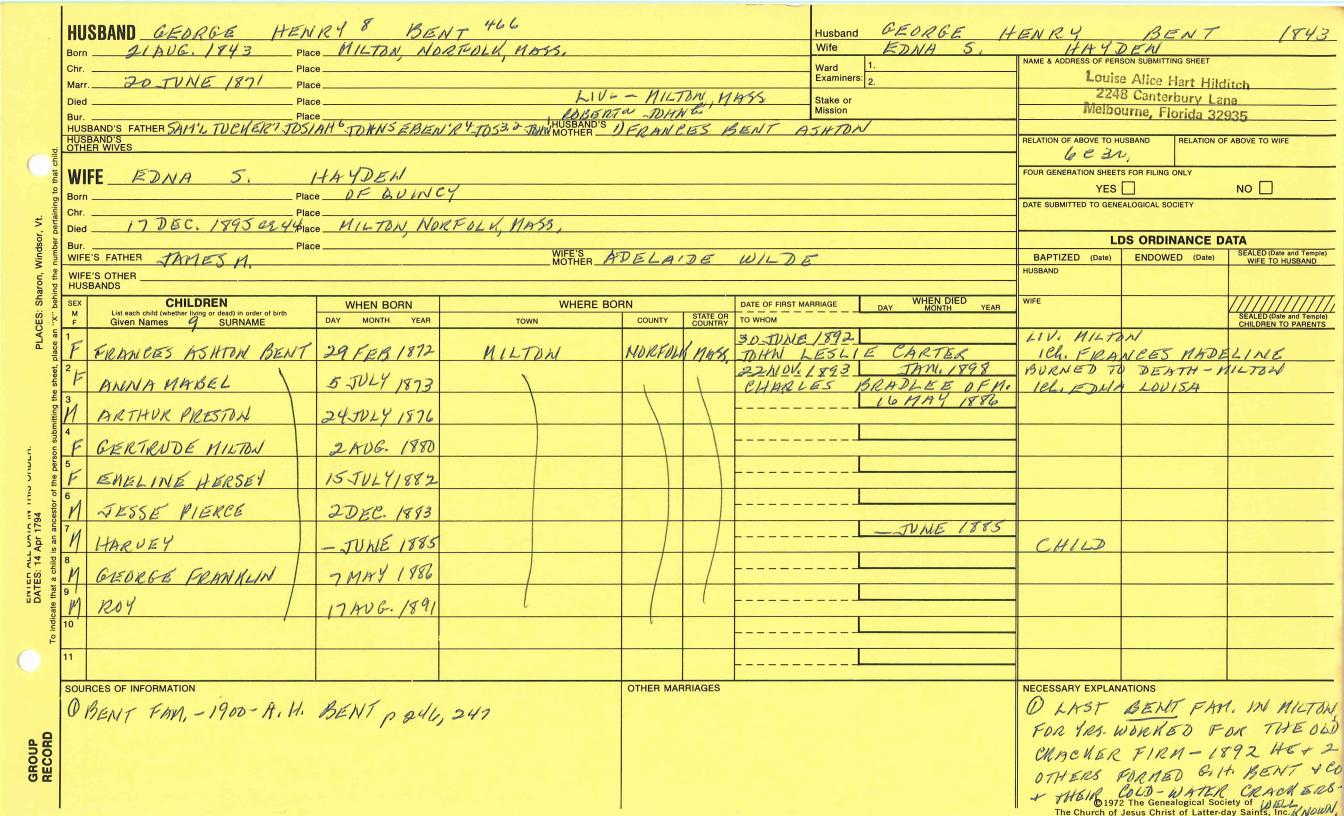 HUSBAND GEORGE HENRY 8 BENT 466
Born 21 AUG. 1843 Place MILTON, NORFOLK, MASS.
Chr. Place
Marr. 20 JUNE 1871 Place
Died Place LIV. - MILTON, MASS
Bur. Place ROBERT JOHN
HUSBAND'S FATHER SAM'L TUCKER7 JOSIAH6 JOHN5 EBEN'R4 JOS3,2 JOHN1 HUSBAND'S MOTHER 1) FRANCES BENT ASHTON
HUSBAND'S OTHER WIVES
Husband GEORGE HENRY BENT 1843
Wife EDNA S. HAYDEN
Ward Examiners: 1.
2.
Stake or Mission
NAME & ADDRESS OF PERSON SUBMITTING SHEET
Louise Alice Hart Hilditch
2248 Canterbury Lane
Melbourne, Florida 32935
RELATION OF ABOVE TO HUSBAND RELATION OF ABOVE TO WIFE
6C3R.
FOUR GENERATION SHEETS FOR FILING ONLY
YES NO
DATE SUBMITTED TO GENEALOGICAL SOCIETY
WIFE EDNA S. HAYDEN
Born Place OF QUINCY
Chr. Place
Died 17 DEC. 1895 ae 44 Place MILTON, NORFOLK, MASS.
Bur. Place
WIFE'S FATHER JAMES M. WIFE'S MOTHER ADELAIDE WILDE
WIFE'S OTHER HUSBANDS
LDS ORDINANCE DATA
BAPTIZED (Date) ENDOWED (Date) SEALED (Date and Temple) WIFE TO HUSBAND
HUSBAND
WIFE
SEALED (Date and Temple) CHILDREN TO PARENTS
SEX M F
CHILDREN
List each child (whether living or dead) in order of birth
Given Names 9 SURNAME
WHEN BORN
DAY MONTH YEAR
WHERE BORN
TOWN COUNTY STATE OR COUNTRY
DATE OF FIRST MARRIAGE
TO WHOM
WHEN DIED
DAY MONTH YEAR
1 F FRANCES ASHTON BENT 29 FEB 1872 MILTON NORFOLK MASS. 30 JUNE 1892 JOHN LESLIE CARTER LIV. MILTON 1ch. FRANCES MADELINE
2 F ANNA MABEL 5 JULY 1873 22 NOV. 1893 CHARLES BRADLEE OF M. JAN. 1898 BURNED TO DEATH - MILTON 1ch. EDNA LOUISA
3 M ARTHUR PRESTON 24 JULY 1876 16 MAY 1886
4 F GERTRUDE MILTON 2 AUG. 1880
5 F EMELINE HERSEY 15 JULY 1882
6 M JESSE PIERCE 2 DEC. 1883
7 M HARVEY - JUNE 1885 - JUNE 1885 CHILD
8 M GEORGE FRANKLIN 7 MAY 1886
9 M ROY 17 AUG. 1891
10
11
SOURCES OF INFORMATION
① BENT FAM. - 1900 - A. H. BENT p 246, 247
OTHER MARRIAGES
NECESSARY EXPLANATIONS
① LAST BENT FAM. IN MILTON
FOR YRS. WORKED FOR THE OLD
CRACKER FIRM - 1892 HE + 2
OTHERS FORMED G.H. BENT + CO
+ THEIR COLD-WATER CRACKERS-
WELL KNOWN.
©1972 The Genealogical Society of
The Church of Jesus Christ of Latter-day Saints, Inc.
PLACES: Sharon, Windsor, Vt.
DATES: 14 Apr 1794
To indicate that a child is an ancestor of the person submitting the sheet, place an "X" behind the number pertaining to that child.
GROUP RECORD